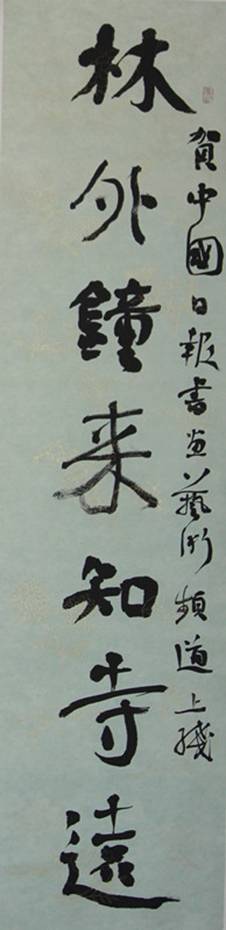 賀中國日報書画藝術頻道上綫
林外鐘来知寺遠